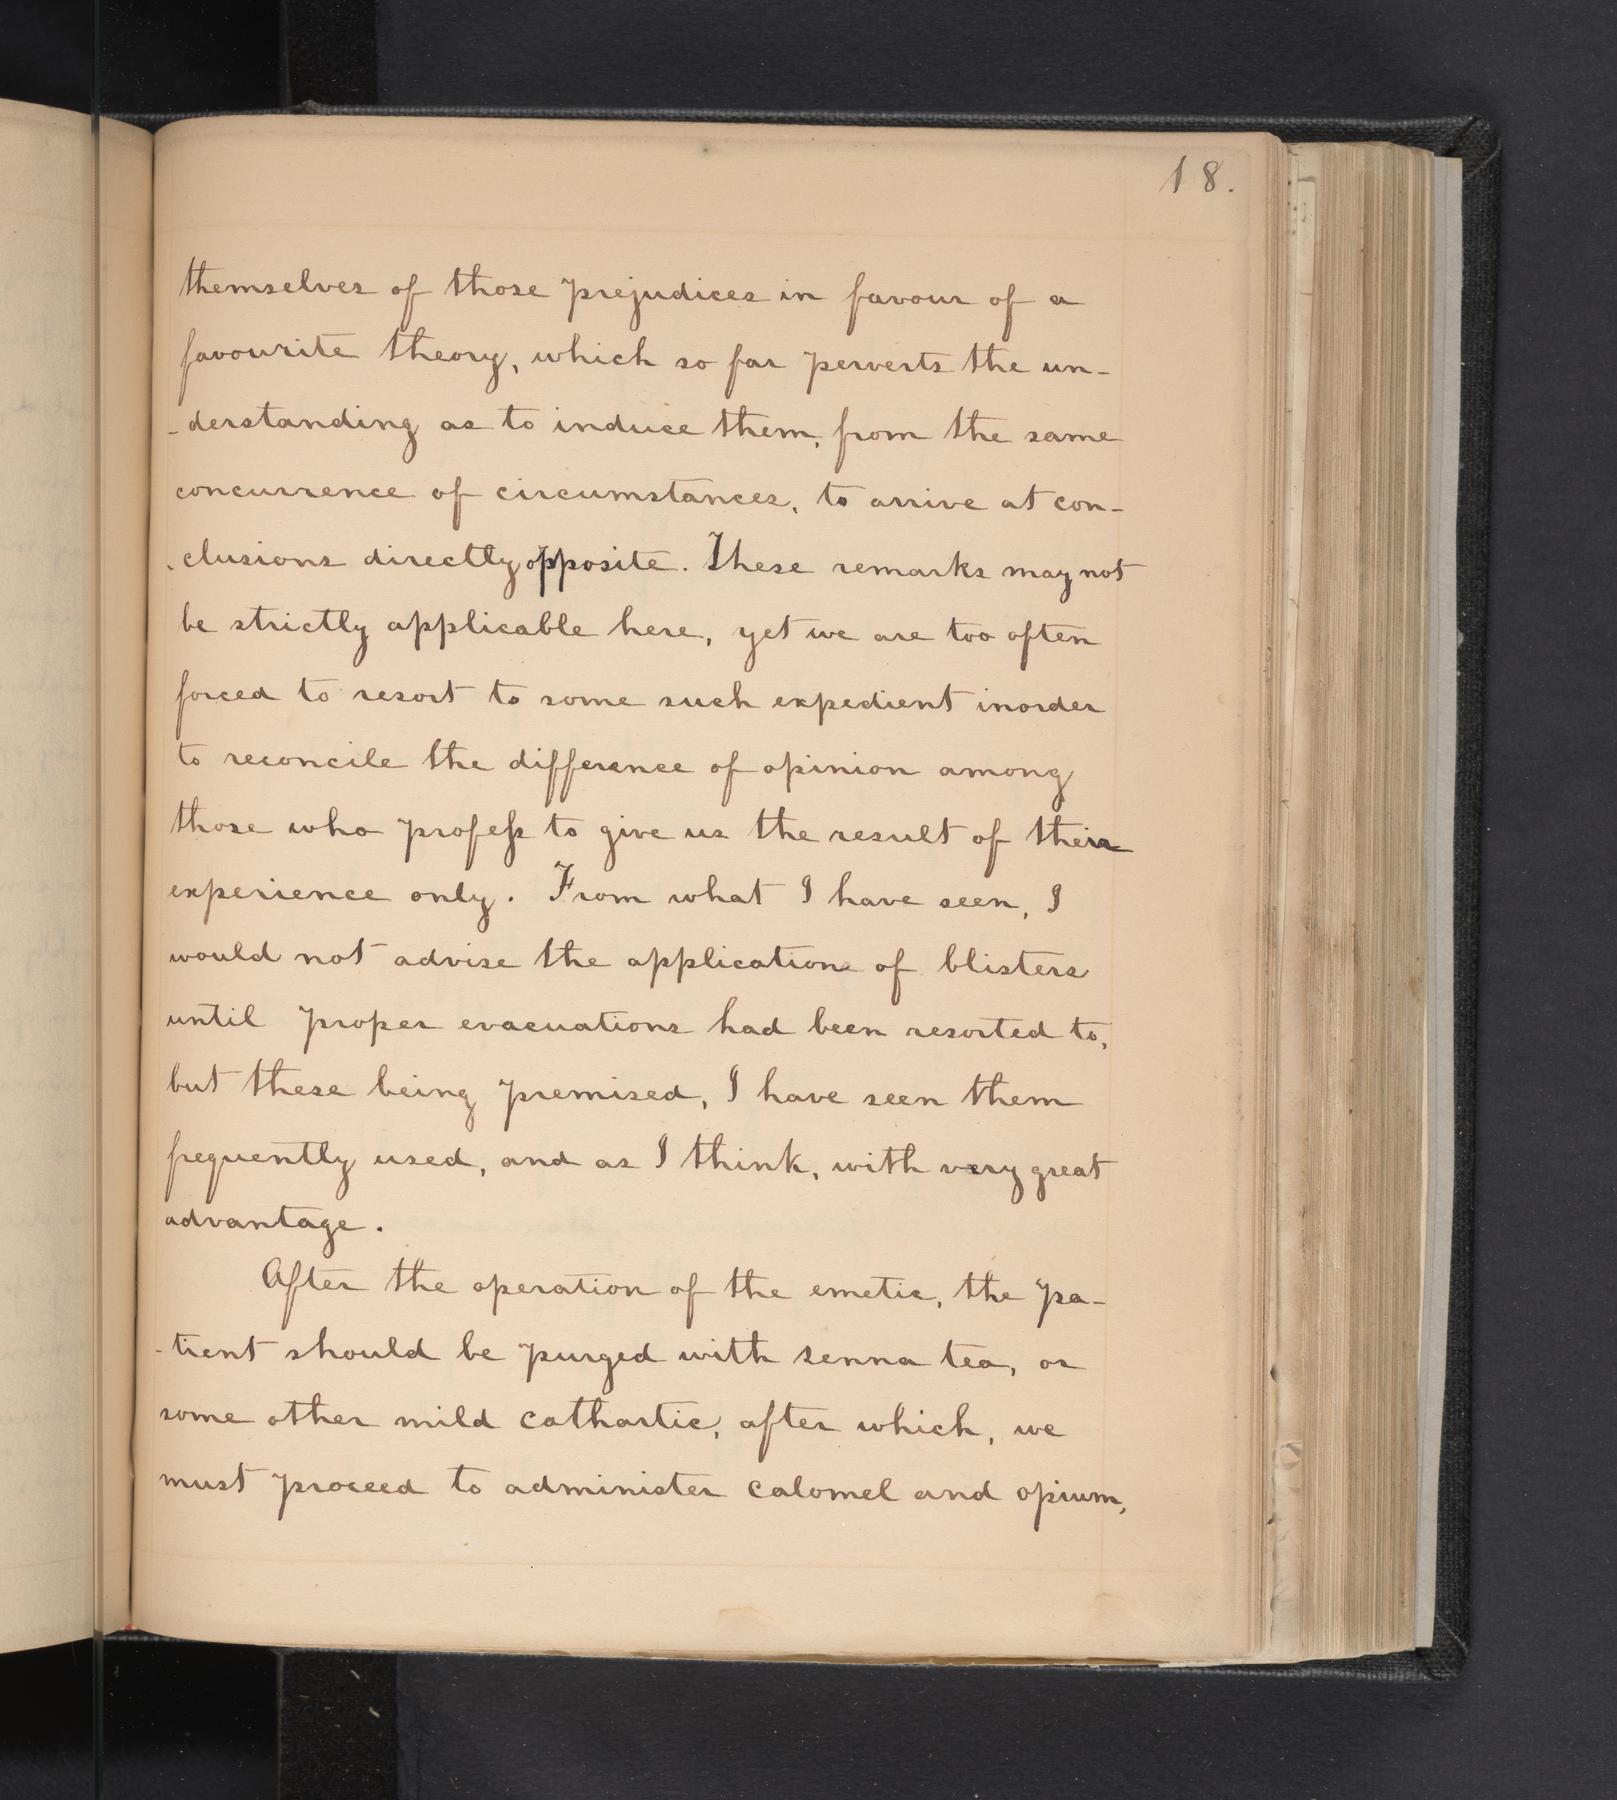 18.
themselves of those prejudices in favour of a
favourite theory, which so far perverts the un-
-derstanding as to induce them, from the same
concurrence of circumstances, to arrive at con-
-clusions directly opposite. These remarks may not
be strictly applicable here, yet we are too often
forced to resort to some such expedient inorder
to reconcile the difference of opinion among
those who profeſs to give us the result of their
experience only. From what I have seen, I
would not advise the application of blisters
until proper evacuations had been resorted to,
but these being premised, I have seen them
frequently used, and as I think, with very great
advantage.
After the operation of the emetic, the pa-
-tient should be purged with senna tea, or
some other mild cathartic, after which, we
must proceed to administer calomel and opium,